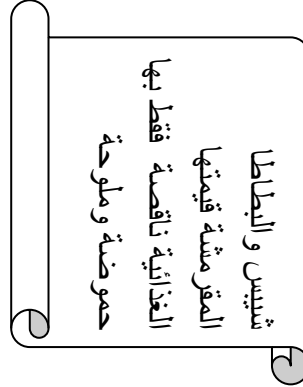 شيبس والبطاطا
المقرمشة قيمتها
الغذائية ناقصة فقط بها
حموضة وملوحة